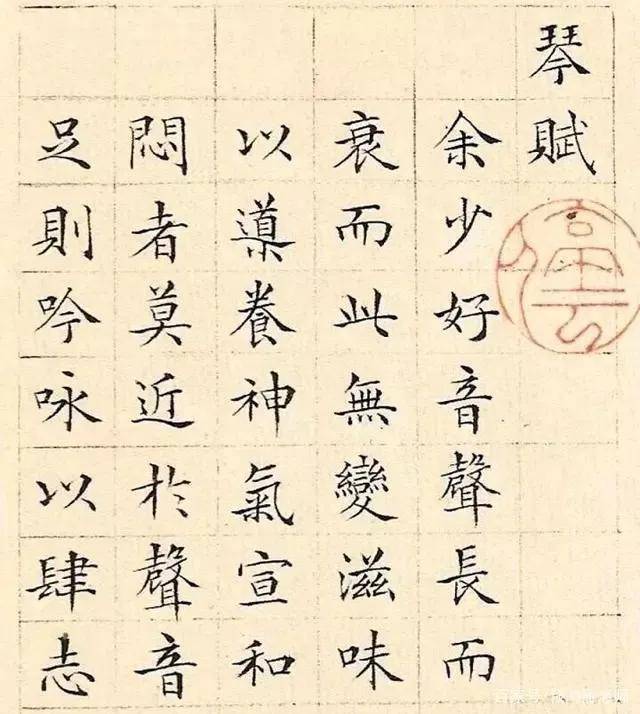 琴賦
余少好音聲長而
衰而此無變滋味
以導養神氣宣和
悶者莫近於聲音
足則吟咏以肆志